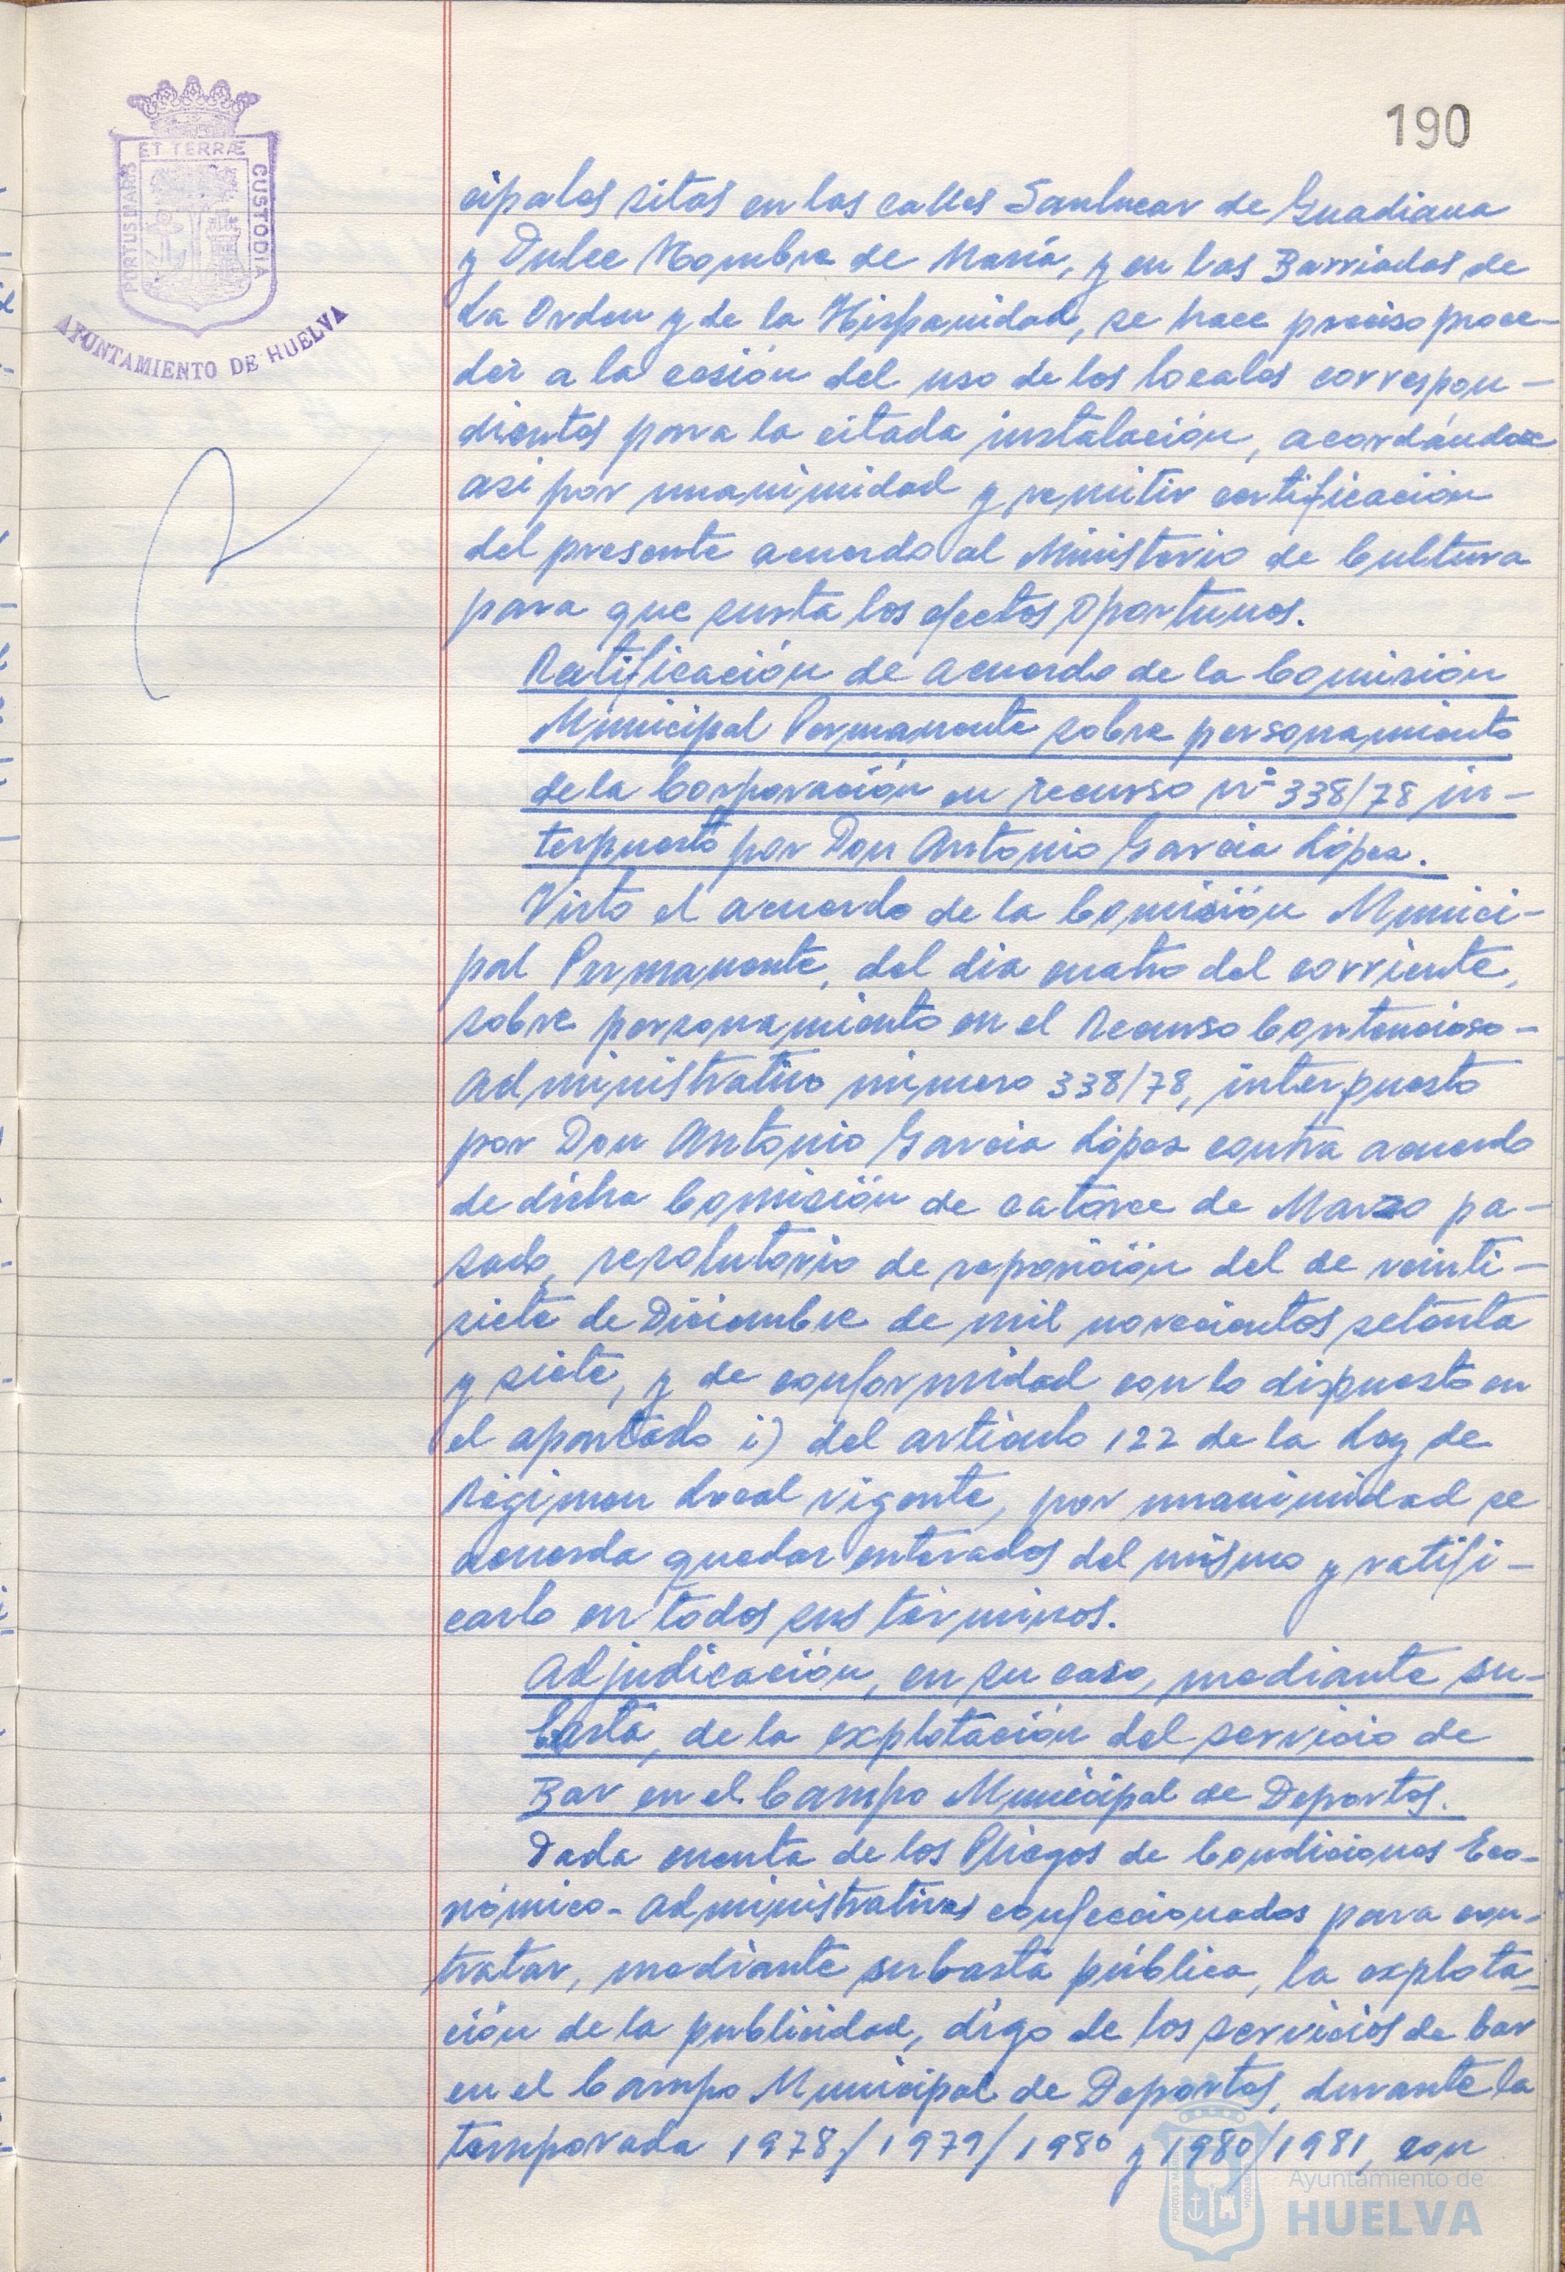 190
ET TERRÆ
PORTUS MARIS
CUSTODIA
AYUNTAMIENTO DE HUELVA
cipales sitos en las calles Sanlucar de Guadiana
y Dulce Nombre de María, y en las Barriadas de
La Orden y de la Hispanidad, se hace preciso proce-
der a la cesión del uso de los locales correspon-
dientes para la citada instalación, acordándose
asi por unanimidad y remitir certificación
del presente acuerdo al Ministerio de Cultura
para que surta los efectos oportunos.
Ratificación de acuerdo de la Comisión
Municipal Permanente sobre personamiento
de la Corporación en recurso nº 338/78 in-
terpuesto por Don Antonio Garcia López.
Visto el acuerdo de la Comisión Munici-
pal Permanente, del dia cuatro del corriente,
sobre personamiento en el Recurso Contencioso-
administrativo número 338/78, interpuesto
por Don Antonio Garcia López contra acuerdo
de dicha Comisión de catorce de Marzo pa-
sado, resolutorio de reposición del de veinti-
siete de Diciembre de mil novecientos setenta
y siete, y de conformidad con lo dispuesto en
el apartado i) del artículo 122 de la Ley de
Régimen Local vigente, por unanimidad se
acuerda quedar enterados del mismo y ratifi-
carlo en todos sus términos.
Adjudicación, en su caso, mediante su-
basta, de la explotación del servicio de
Bar en el Campo Municipal de Deportes.
Dada cuenta de los Pliegos de Condiciones Eco-
nómico-administrativas confeccionados para con-
tratar, mediante subasta pública, la explota-
ción de la publicidad, digo de los servicios de bar
en el Campo Municipal de Deportes, durante la
temporada 1978/1979/1980 y 1980/1981, con
Ayuntamiento de
HUELVA